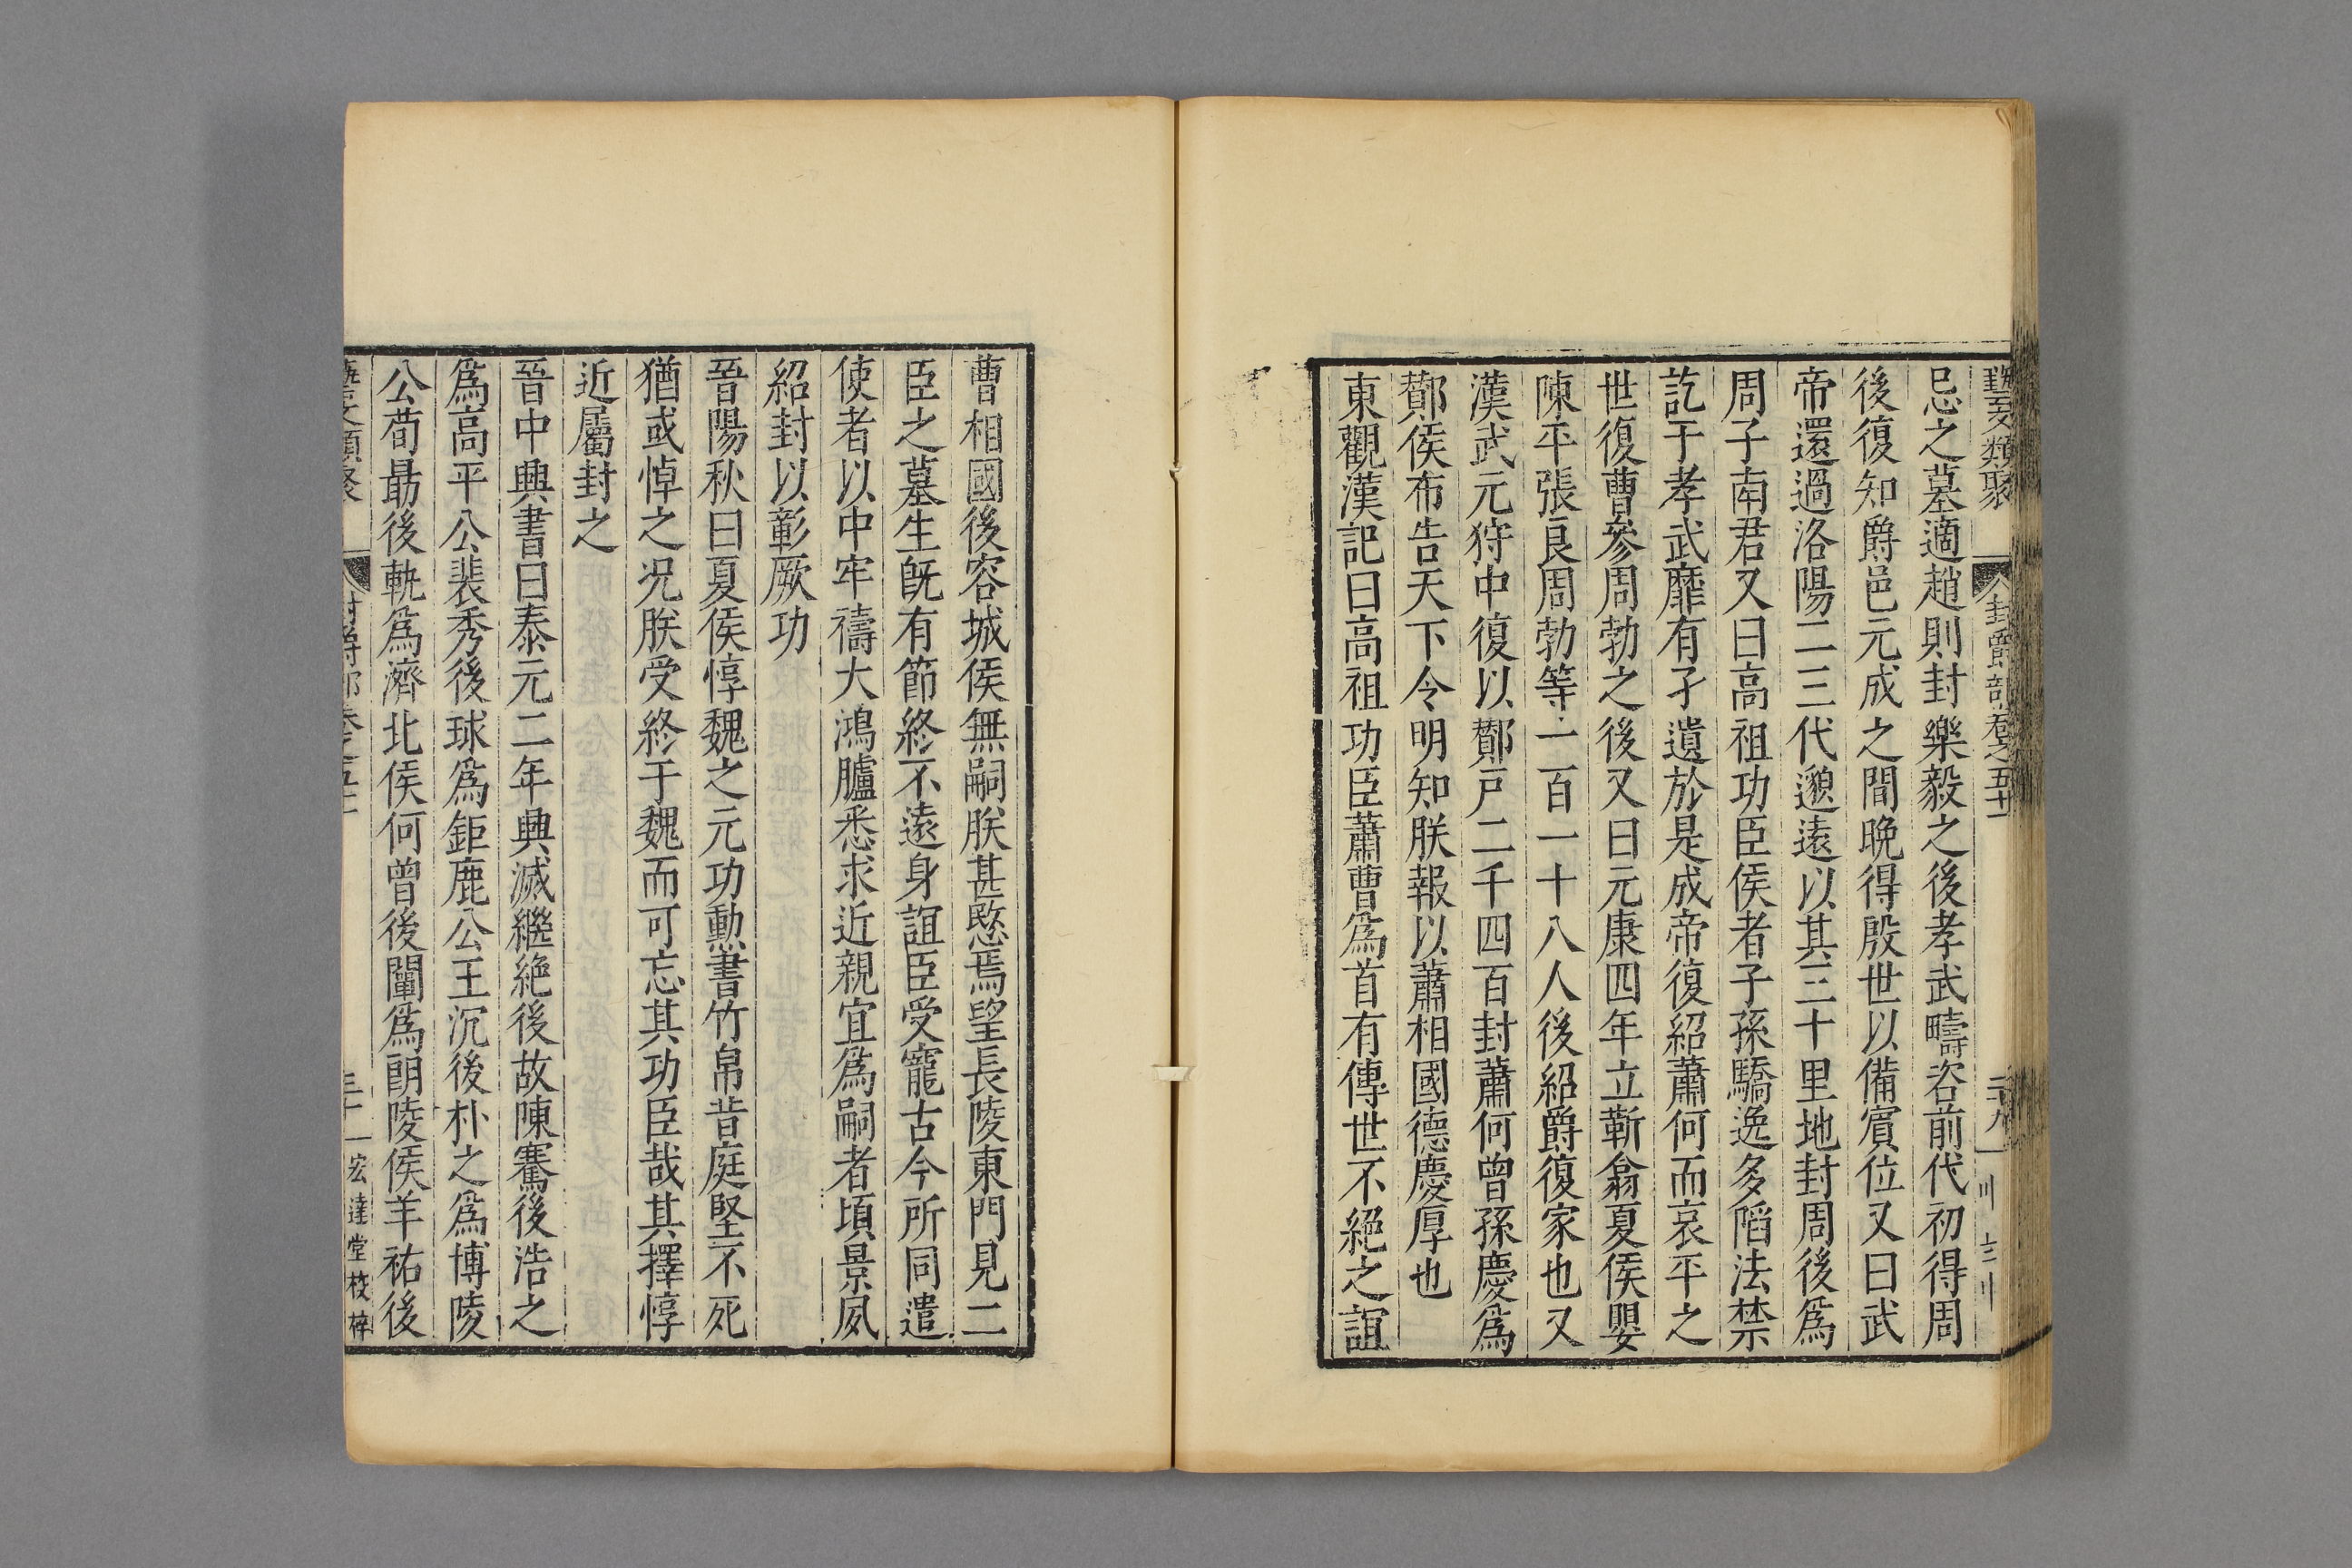 藝文類聚 封爵部卷之五十一 二十九
忌之墓適趙則封樂毅之後孝武疇咨前代初得周
後復知爵邑元成之間晩得殷世以備賓位又曰武
帝還過洛陽二三代邈遠以其三十里地封周後爲
周子南君又曰高祖功臣侯者子孫驕逸多䧟法禁
訖于孝武靡有孑遺於是成帝復紹蕭何而哀平之
世復曹參周勃之後又曰元康四年立靳翕夏侯嬰
陳平張良周勃等一百一十八人後紹爵復家也又
漢武元狩中復以酇戸二千四百封蕭何曾孫慶爲
酇侯布告天下令明知朕報以蕭相國德慶厚也
東觀漢記曰高祖功臣蕭曹爲首有傳世不絕之誼
曹相國後容城侯無嗣朕甚愍焉望長陵東門見二
臣之墓生旣有節終不遠身誼臣受寵古今所同遣
使者以中牢禱大鴻臚悉求近親宜爲嗣者頃景夙
紹封以彰厥功
晉陽秋曰夏侯惇魏之元功勳書竹帛昔庭堅不死
猶或悼之况朕受終于魏而可忘其功臣哉其擇惇
近屬封之
晉中興書曰泰元二年興滅繼絶後故陳騫後浩之
爲高平公裴秀後球爲鉅鹿公王沉後朴之爲博陵
公荀勗後軼爲濟北侯何曾後闡爲朗陵侯羊祐後
藝文類聚 封爵部卷之五十一 三十 宏達堂校梓